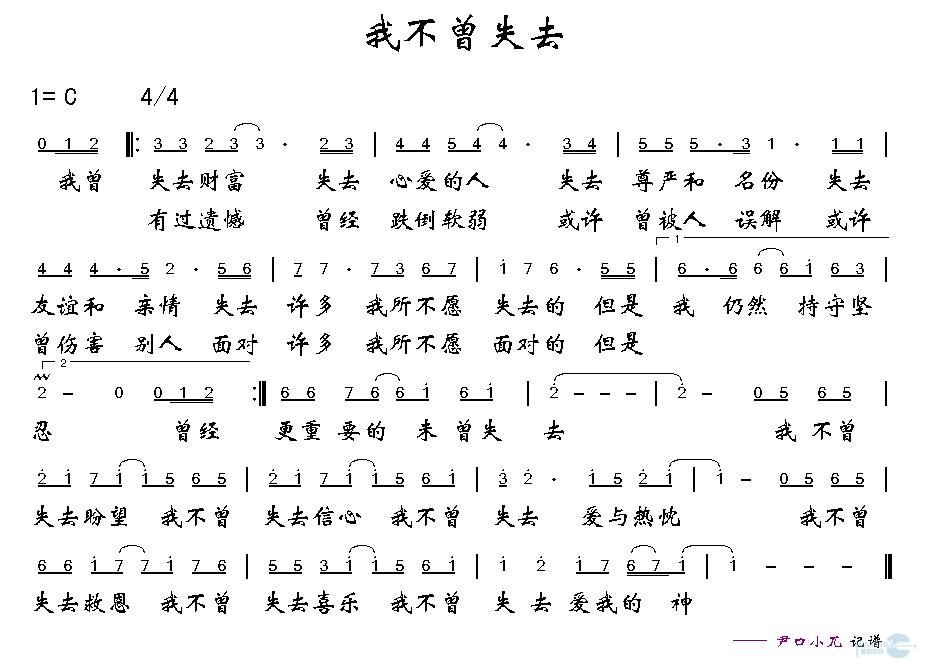 我不曾失去
1= C 4/4
0 1 2 ‖: 3 3 2 3 3 · 2 3 | 4 4 5 4 4 · 3 4 | 5 5 5 · 3 1 · 1 1 |
我曾 失去财富 失去 心爱的人 失去 尊严和 名份 失去
有过遗憾 曾经 跌倒软弱 或许 曾被人 误解 或许
1
4 4 4 · 5 2 · 5 6 | 7 7 · 7 3 6 7 | 1 7 6 · 5 5 | 6 · 6 6 6 1 6 3 |
友谊和 亲情 失去 许多 我所不愿 失去的 但是 我 仍然 持守坚
曾伤害 别人 面对 许多 我所不愿 面对的 但是
2
2 – 0 0 1 2 :‖ 6 6 7 6 6 1 6 1 | 2 – – – | 2 – 0 5 6 5 |
忍 曾经 更重 要的 未 曾失 去 我 不曾
2 1 7 1 1 5 6 5 | 2 1 7 1 1 5 6 1 | 3 2 · 1 5 2 1 | 1 – 0 5 6 5 |
失去盼望 我不曾 失去信心 我不曾 失去 爱与热忱 我不曾
6 6 1 7 7 1 7 6 | 5 5 3 1 1 5 6 1 | 1 2 1 7 6 7 1 | 1 – – – ‖
失去救恩 我不曾 失去喜乐 我不曾 失去 爱我的 神
—— 尹口小兀 记谱